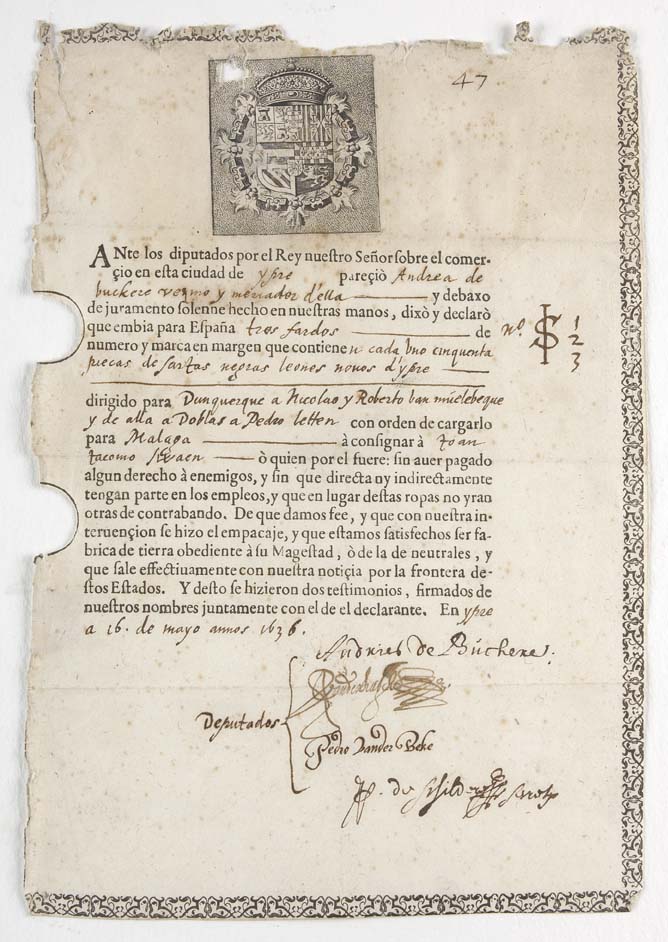 47
ANte los diputados por el Rey nuestro Señor sobre el comer-
çio en esta ciudad de ypre pareçió Andrea de
buckere vezino y mercador d'ella y debaxo
de juramento solenne hecho en nuestras manos, dixò y declarò
que embia para España tres fardos de nº. 1
numero y marca en margen que contienen cada uno cinquenta 2
piecas de sartas negras leones novos d'ypre 3
dirigido para Dunquerque a Nicolao y Roberto van
y de alla a Doblas a Pedro letten con orden de cargarlo
para Malaga à consignar à Joan
Jacomo ò quien por el fuere: sin auer pagado
algun derecho à enemigos, y sin que directa ny indirectamente
tengan parte en los empleos, y que en lugar destas ropas no yran
otras de contrabando. De que damos fee, y que con nuestra in-
teruençion se hizo el empacaje, y que estamos satisfechos ser fa-
brica de tierra obediente à su Magestad, ò de la de neutrales, y
que sale effectiuamente con nuestra notiçia por la frontera de-
stos Estados. Y desto se hizieron dos testimonios, firmados de
nuestros nombres juntamente con el de el declarante. En ypre
a 16. de mayo annos 1636.
Andries de Buchere.
Deputados
Pedro Vander Beke
de Schilder